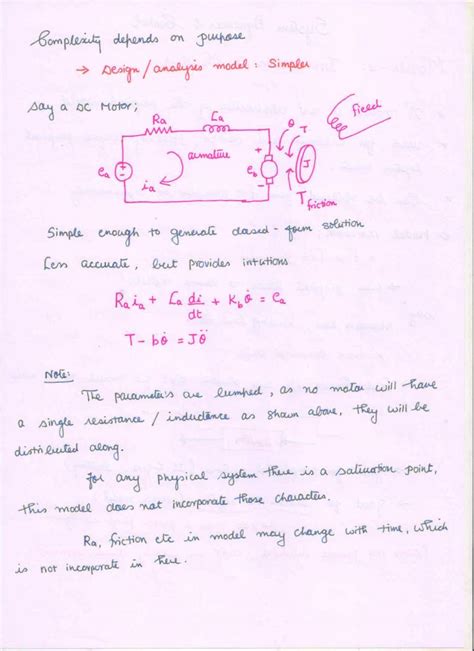 Complexity depends on purpose
→ Design/analysis model: Simpler
Say a DC Motor;
Ra La
θ T Field
+ armature + J
ea ia eb
- -
T friction
Simple enough to generate closed-form solution
Less accurate, but provides intutions
Ra ia + La di/dt + Kb θ̇ = ea
T - bθ̇ = Jθ̈
Note:
The parameters are lumped, as no motor will have
a single resistance / inductance as shown above, they will be
distributed along.
For any physical system there is a saturation point,
this model does not incorporate those characters.
Ra, friction etc in model may change with time, which
is not incorporate in here.